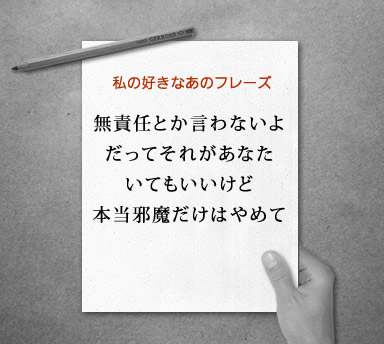 私の好きなあのフレーズ
無責任とか言わないよ
だってそれがあなた
いてもいいけど
本当邪魔だけはやめて